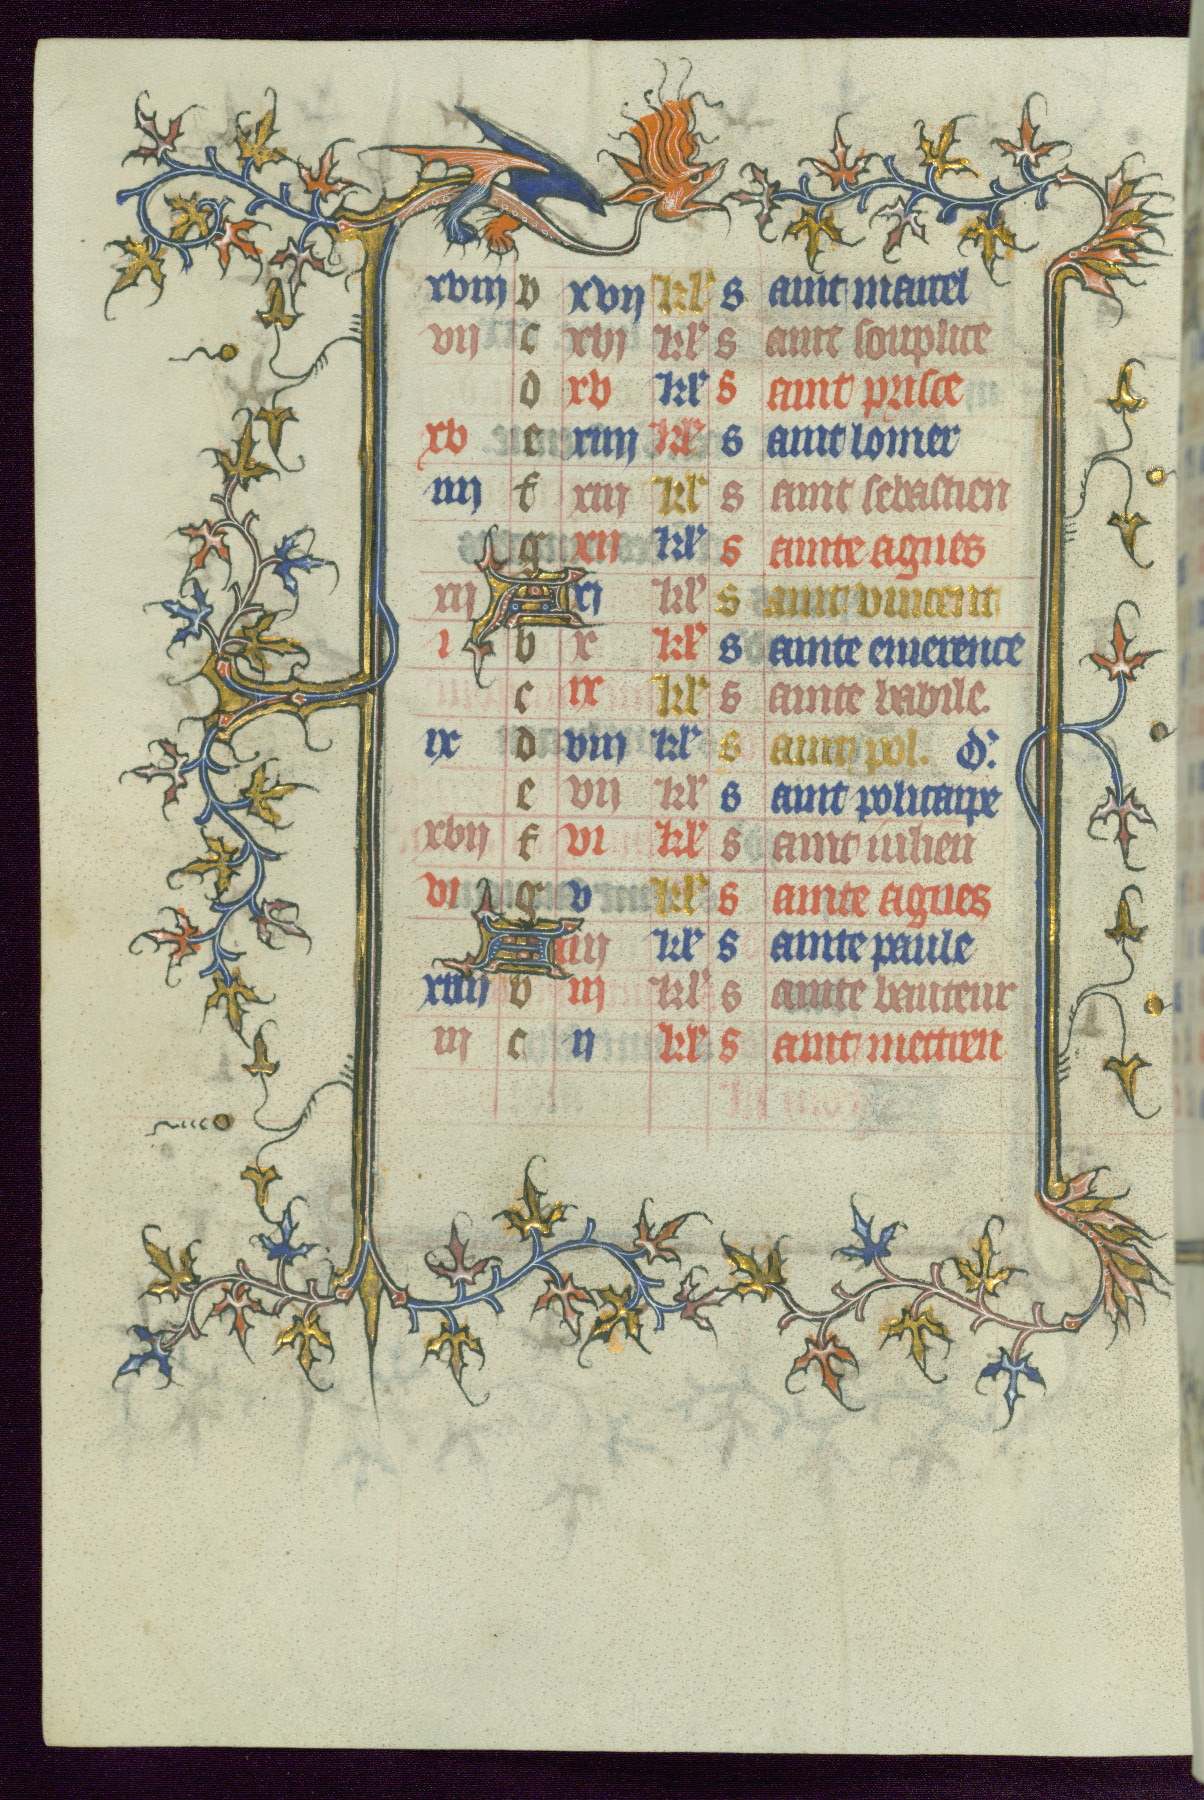 xviij b xvij kl' s aint maucel
vij c xvj kl' s aint souplice
d xv kl' s aint prisce
xv e xiiij kl' s aint lomer
iiij f xiij kl' s aint sebastien
g xij kl' s ainte agnes
xij A xj kl' s aint vincent
i b x kl' s ainte emerence
c ix kl' s ainte babile.
ix d viij kl' s aint pol. d'.
e vij kl' s aint policarpe
xvij f vi kl' s aint iulien
vi g v kl' s ainte agnes
A iiij kl' s ainte paule
xiiij b iij kl' s ainte bauteur
iij c ij kl' s aint metrien